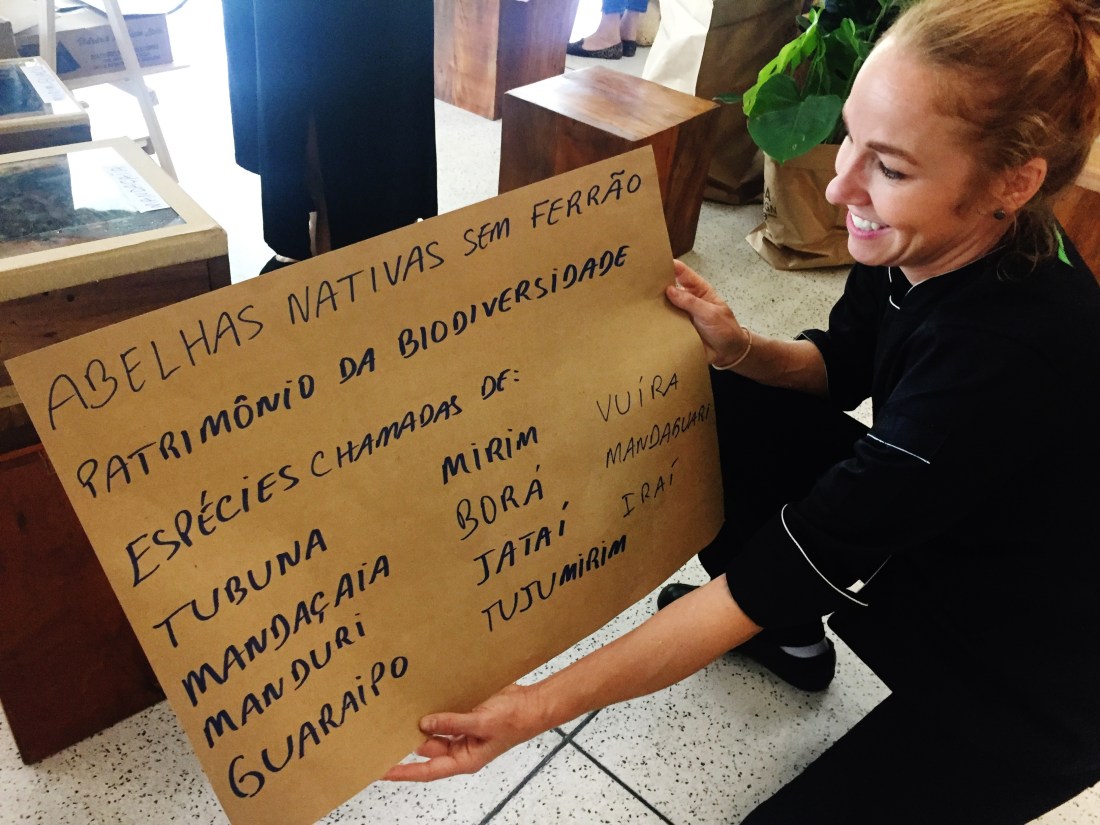 ABELHAS NATIVAS SEM FERRÃO
PATRIMÔNIO DA BIODIVERSIDADE
ESPÉCIES CHAMADAS DE:
TUBUNA MIRIM VUÍRA
MANDAÇAIA BORÁ MANDAGUARI
MANDURI JATAÍ IRAÍ
GUARAIPO TUJUMIRIM